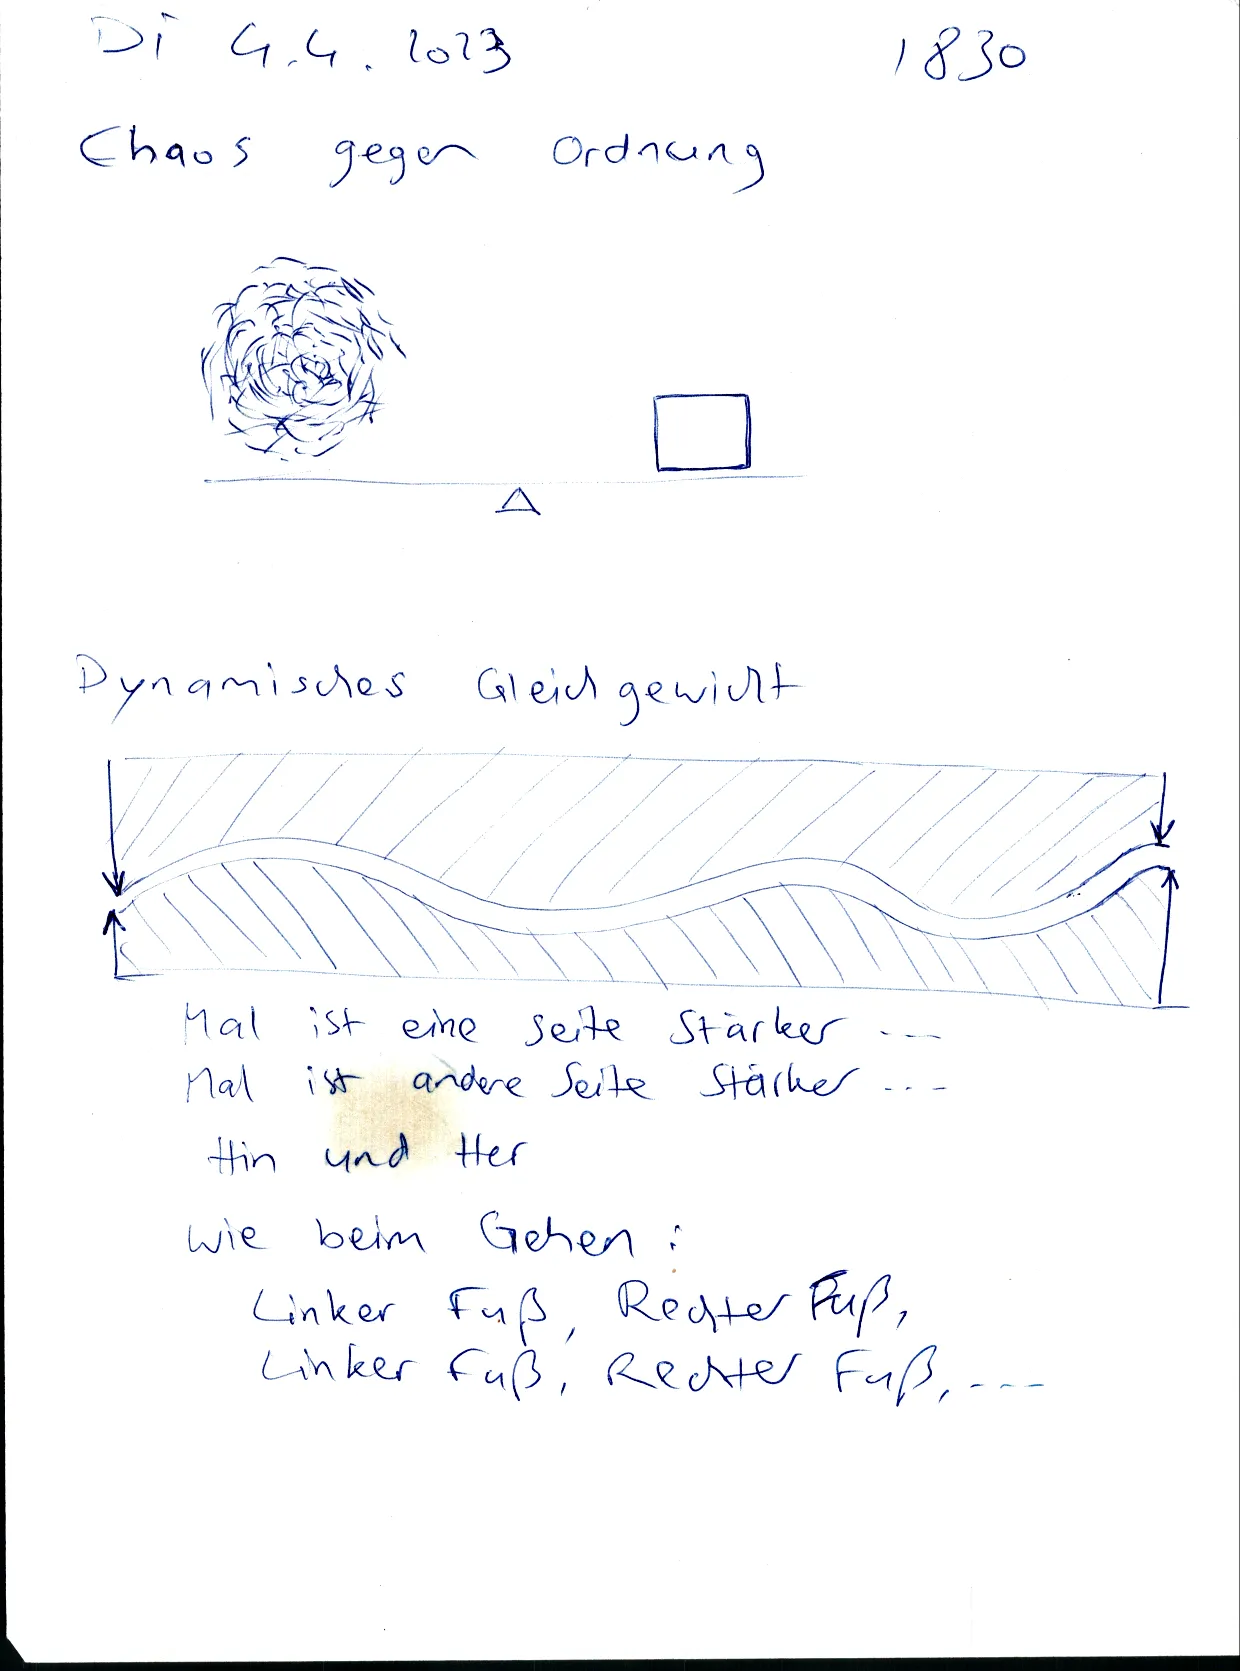 Di 4.4.2023 1830
Chaos gegen Ordnung
Dynamisches Gleichgewicht
Mal ist eine Seite Stärker ...
Mal ist andere Seite Stärker ...
Hin und Her
wie beim Gehen:
Linker Fuß, Rechter Fuß,
Linker Fuß, Rechter Fuß, ...